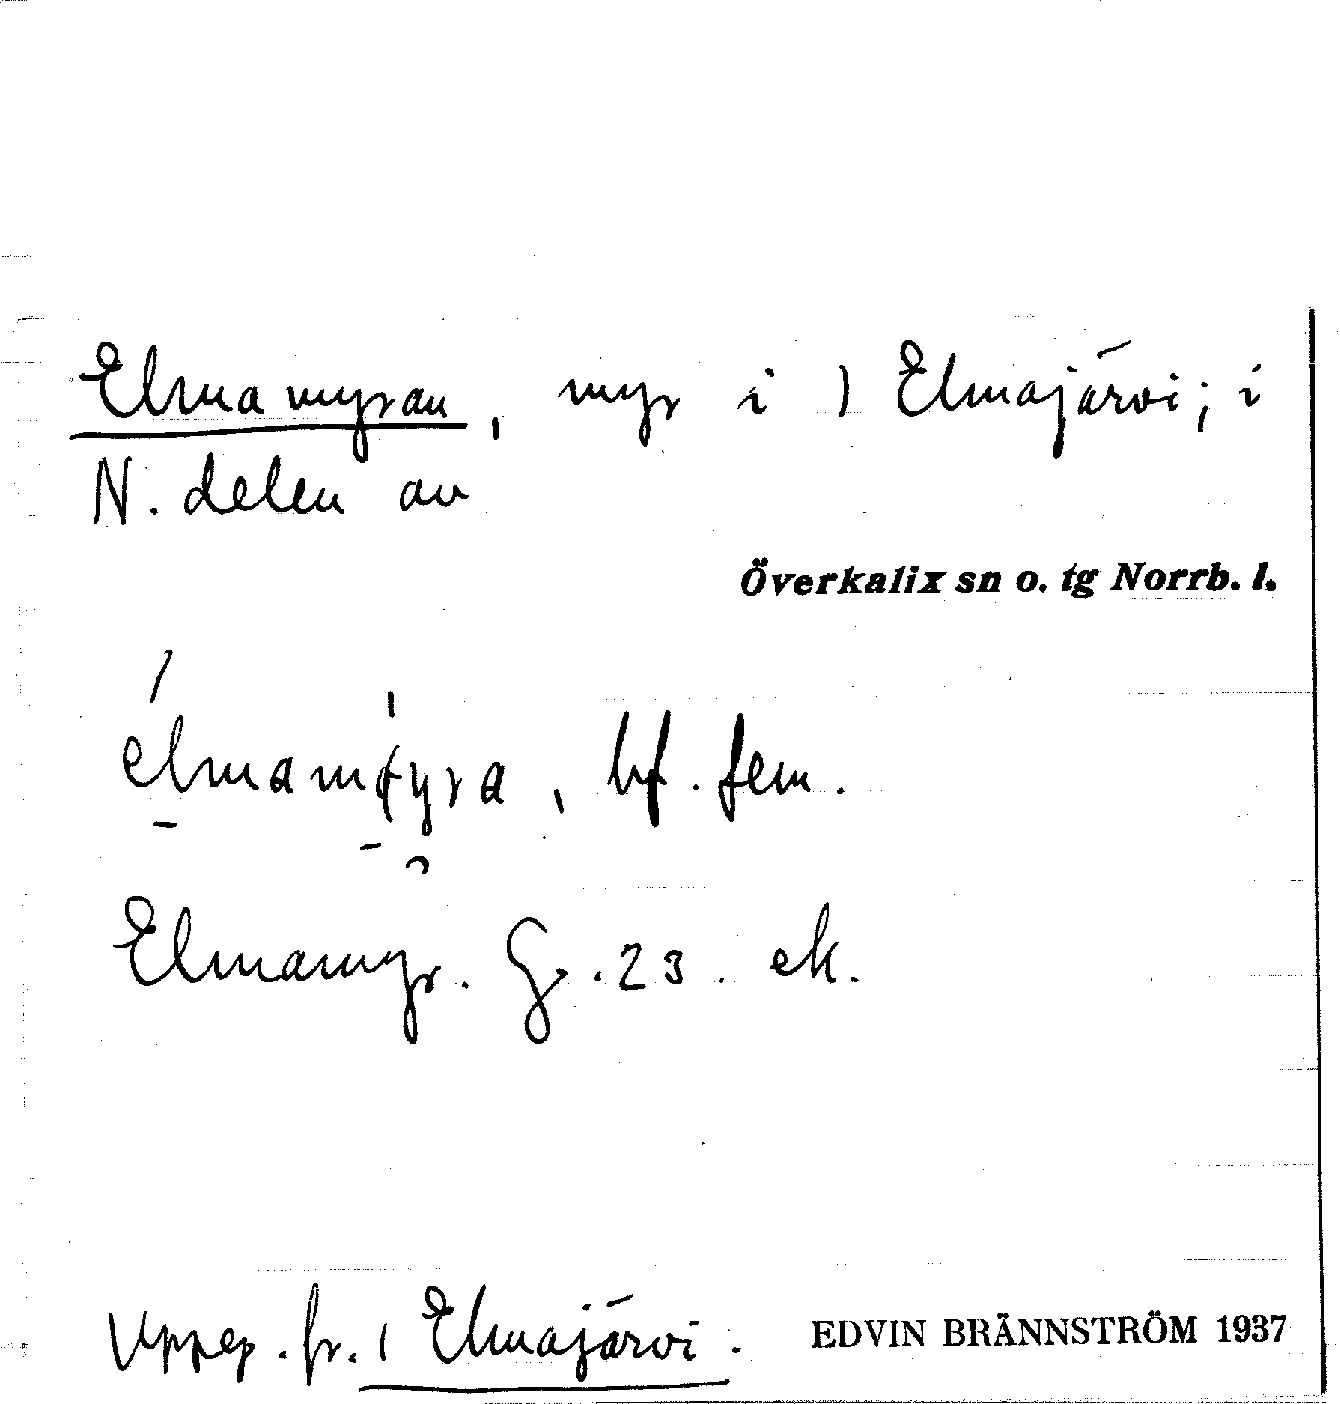 Elmamyran, myr i 1 Elmajärvi; i
N. delen av
Överkalix sn o. tg Norrb. l.
elmamøyra, bf. fem.
Elmamyr. G. 23. ek.
Uppg. fr. 1 Elmajärvi.
EDVIN BRÄNNSTRÖM 1937